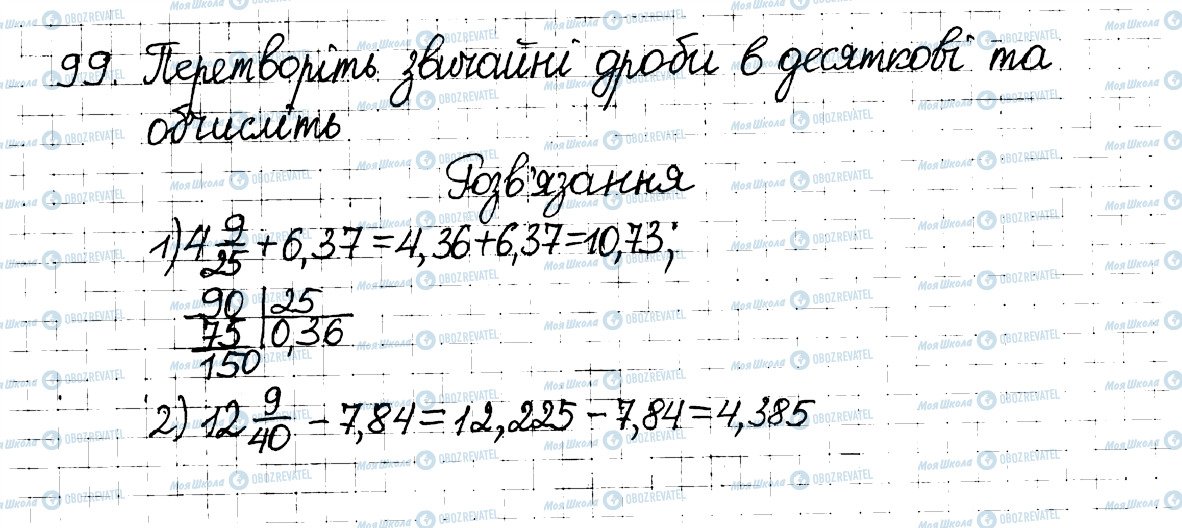 99. Перетворіть звичайні дроби в десяткові та
обчисліть.
Розв'язання
1) 4 9/25 + 6,37 = 4,36 + 6,37 = 10,73;
90 | 25
75 | 0,36
150
2) 12 9/40 - 7,84 = 12,225 - 7,84 = 4,385